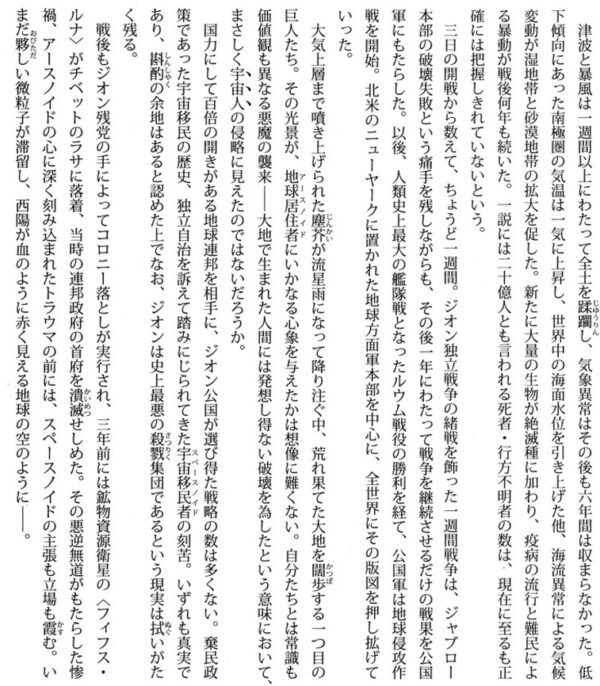 津波と暴風は一週間以上にわたって全土を蹂躙し、気象異常はその後も六年間は収まらなかった。低
下傾向にあった南極圏の気温は一気に上昇し、世界中の海面水位を引き上げた他、海流異常による気候
変動が湿地帯と砂漠地帯の拡大を促した。新たに大量の生物が絶滅種に加わり、疫病の流行と難民によ
る暴動が戦後何年も続いた。一説には二十億人とも言われる死者・行方不明者の数は、現在に至るも正
確には把握しきれていないという。
三日の開戦から数えて、ちょうど一週間。ジオン独立戦争の緒戦を飾った一週間戦争は、ジャブロー
本部の破壊失敗という痛手を残しながらも、その後一年にわたって戦争を継続させるだけの戦果を公国
軍にもたらした。以後、人類史上最大の艦隊戦となったルウム戦役の勝利を経て、公国軍は地球侵攻作
戦を開始。北米のニューヤークに置かれた地球方面軍本部を中心に、全世界にその版図を押し拡げて
いった。
大気上層まで噴き上げられた塵芥が流星雨になって降り注ぐ中、荒れ果てた大地を闊歩する一つ目の
巨人たち。その光景が、地球居住者にいかなる心象を与えたかは想像に難くない。自分たちとは常識も
価値観も異なる悪魔の襲来――大地で生まれた人間には発想し得ない破壊を為したという意味において、
まさしく宇宙人の侵略に見えたのではないだろうか。
国力にして百倍の開きがある地球連邦を相手に、ジオン公国が選び得た戦略の数は多くない。棄民政
策であった宇宙移民の歴史、独立自治を訴えて踏みにじられてきた宇宙移民者の刻苦。いずれも真実で
あり、斟酌の余地はあると認めた上でなお、ジオンは史上最悪の殺戮集団であるという現実は拭いがた
く残る。
戦後もジオン残党の手によってコロニー落としが実行され、三年前には鉱物資源衛星の〈フィフス・
ルナ〉がチベットのラサに落着、当時の連邦政府の首府を潰滅せしめた。その悪逆無道がもたらした惨
禍、アースノイドの心に深く刻み込まれたトラウマの前には、スペースノイドの主張も立場も霞む。い
まだ夥しい微粒子が滞留し、西陽が血のように赤く見える地球の空のように――。